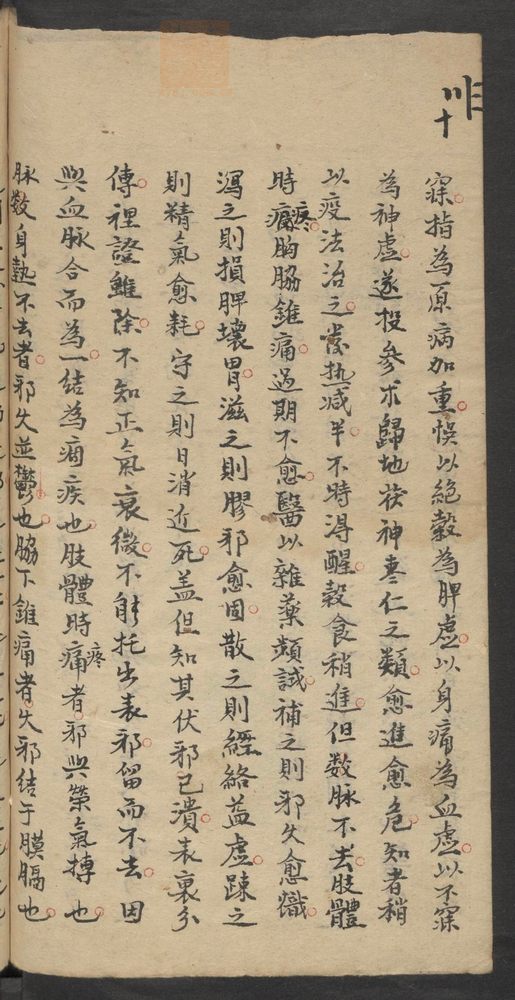 寐指為原病加重悞以絕穀為脾虛以身痛為血虛以不寐
為神虛遂投參朮歸地茯神棗仁之類愈進愈危知者稍
以疫法治之發热减半不時得醒穀食稍進但数脉不去肢體
時疼痛胸脇錐痛過期不愈醫以雜葯頻試補之則邪火愈熾
瀉之則損脾壞胃滋之則膠邪愈固散之則經絡益虛踈之
則精氣愈耗守之則日消近死盖但知其伏邪已潰表裏分
傳裡證雖除不知正氣衰微不能托出表邪留而不去因
與血脉合而為一結為痼疾也肢體時疼痛者邪與榮氣搏也
脉数身熱不去者邪火並鬱也脇下錐痛者火邪結于膜膈也